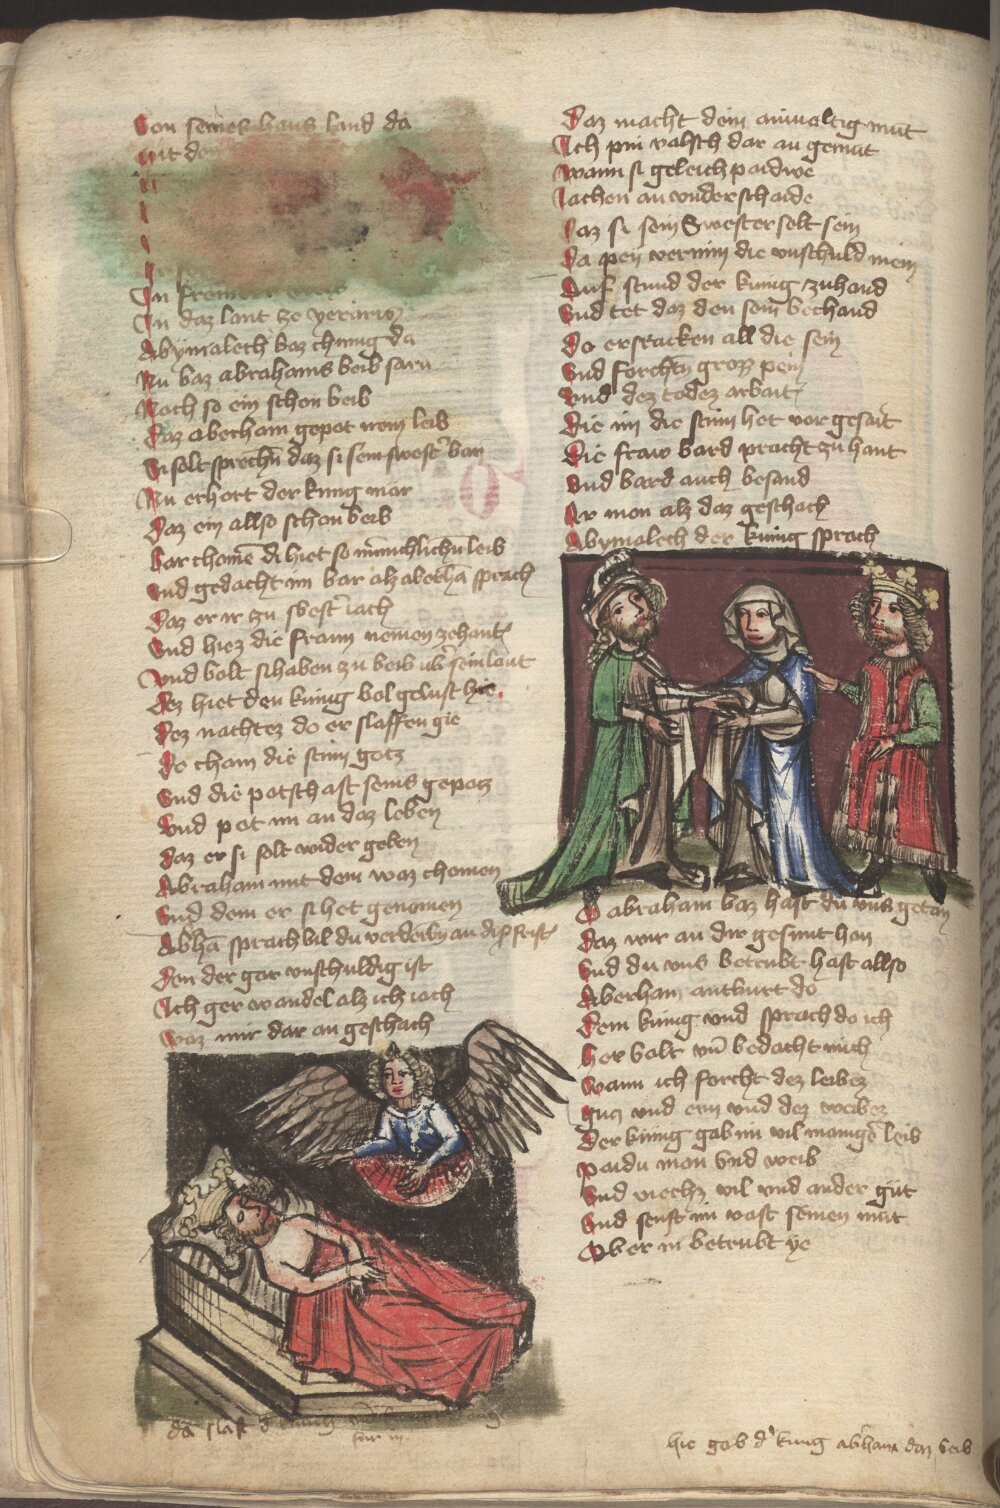 Von seines land da
mit
In
In daz lant ze Yeraris
Abymalech waz chunig da
Nu waz abrahams beib sara
Noch so ein schon beib
Daz aberham gepot irem leib
Si solt sprechn daz si sein swest' bar
Nu erhort der kunig mar
Daz ein allso schon beib
Bar chome di hiet so leib
Vnd gedacht im bar alz abrahā sprach
Daz er ir zu swest' iach
Vnd hiez die frawn nemen zehant
Vnd bolt si haben zu beib vb' sein lant
Dez hiet den kunig bol gelust hie
Dez nachtez do er slaffen gie
Do cham die stim gotz
Vnd die potschaft seins gepotz
Vnd pot im an daz leben
Daz er si solt wider geben
Abraham mit dem waz chomen
Vnd dem er si het genomen
Abhā sprach bil du verderbn an frist
Den der gar vnschuldig ist
Ich ger wandel alz ich iach
Waz mir dar an geschach
da slaft d' kunig
fur in
Daz macht dein ainualtig mut
Ich pin valsch dar an gemut
Wann si geleich paidwe
Iachen an vnderschaide
Daz si sein Swester solt sein
Da pey vernim die vnschuld mein
Auf stund der kunig zuhand
Vnd tet daz den sein bechand
Do erschacken all die sein
Vnd forchtn grozz pein
Vnd dez todez arbait
Die im die stim het vor gesait
Die fraw bard pracht zu hant
Vnd bard auch besand
Ir mon alz daz geschach
Abymalech der kunig sprach
O abraham baz hast du vns getan
Daz wir an dir gesunt han
Vnd du vns betrubt hast allso
Aberham antburt do
Dem kunig vnd sprach do ich
Her bolt vn̄ bedacht mich
Wann ich forcht dez leibez
gutz vnd ern vnd dez weibez
Der kunig gab im vil manigē leib
paidu man vnd weib
Vnd viechz vil vnd ander gut
Vnd senft im vast seinen mut
Ob er in betrubt ye
hie gab d' kunig abham daz beib